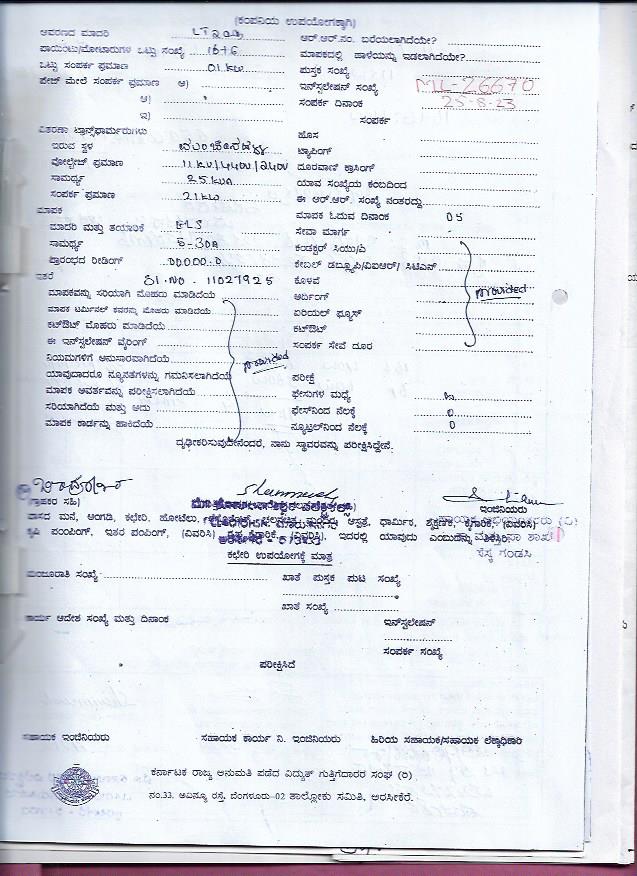 (ಕಂಪನಿಯ ಉಪಯೋಗಕ್ಕಾಗಿ)
ಆವರಣದ ಮಾದರಿ
ಪಾಯಿಂಟು/ಮೋಟಾರುಗಳ ಒಟ್ಟು ಸಂಖ್ಯೆ
ಒಟ್ಟು ಸಂಪರ್ಕ ಪ್ರಮಾಣ 01 KW
ಪೇಜ್ ಮೇಲೆ ಸಂಪರ್ಕ ಪ್ರಮಾಣ ಎ)
ಬಿ)
ಇ)
ವಿತರಣಾ ಟ್ರಾನ್ಸ್‌ಫಾರ್ಮರುಗಳು
ಇರುವ ಸ್ಥಳ
ವೋಲ್ಟೇಜ್ ಪ್ರಮಾಣ 11KV/440V/240V
ಸಾಮರ್ಥ್ಯ 25 KVA
ಸಂಪರ್ಕ ಪ್ರಮಾಣ 21 KW
ಮಾಪಕ
ಮಾದರಿ ಮತ್ತು ತಯಾರಿಕೆ
ಸಾಮರ್ಥ್ಯ 5-30A
ಪ್ರಾರಂಭದ ರೀಡಿಂಗ್ 00000.0
ಇತರೆ Sl.No. 11027925
ಮಾಪಕವನ್ನು ಸರಿಯಾಗಿ ಮೊಹರು ಮಾಡಿದೆಯೆ
ಮಾಪಕ ಟರ್ಮಿನಲ್ ಕವರನ್ನು ಮೊಹರು ಮಾಡಿದೆಯೆ
ಕಟ್‌ಔಟ್ ಮೊಹರು ಮಾಡಿದೆಯೆ
ಈ ಇನ್‌ಸ್ಟಲೇಷನ್ ವೈರಿಂಗ್
ನಿಯಮಗಳಿಗೆ ಅನುಸಾರವಾಗಿದೆಯೆ provided
ಯಾವುದಾದರೂ ನ್ಯೂನತೆಗಳನ್ನು ಗಮನಿಸಲಾಗಿದೆಯೆ
ಮಾಪಕ ಆವರ್ತವನ್ನು ಪರೀಕ್ಷಿಸಲಾಗಿದೆಯೆ
ಸರಿಯಾಗಿದೆಯೆ ಮತ್ತು ಅದು
ಮಾಪಕ ಕಾರ್ಡನ್ನು ಹಾಕಿದೆಯೆ
ಆರ್.ಆರ್.ನಂ. ಬರೆಯಲಾಗಿದೆಯೇ?
ಮಾಪಕದಲ್ಲಿ ಹಾಳೆಯನ್ನು ಇಡಲಾಗಿದೆಯೇ?
ಪುಸ್ತಕ ಸಂಖ್ಯೆ
ಇನ್‌ಸ್ಟಲೇಷನ್ ಸಂಖ್ಯೆ ML-26670
ಸಂಪರ್ಕ ದಿನಾಂಕ 25-8-23
ಸಂಪರ್ಕ
ಹೊಸ
ಟ್ಯಾಪಿಂಗ್
ದೂರವಾಣಿ ಕ್ರಾಸಿಂಗ್
ಯಾವ ಸಂಖ್ಯೆಯ ಕಂಬದಿಂದ
ಈ ಆರ್.ಆರ್. ಸಂಖ್ಯೆ ನಂತರದ್ದು
ಮಾಪಕ ಓದುವ ದಿನಾಂಕ 05
ಸೇವಾ ಮಾರ್ಗ
ಕಂಡಕ್ಟರ್ ಸಿಯು/ಪಿ
ಕೇಬಲ್ ಡಬ್ಲ್ಯೂಪಿ/ವಿಐಆರ್/ ಸಿಟಿಎಸ್
ಕೊಳವೆ provided
ಅರ್ದಿಂಗ್
ಏರಿಯಲ್ ಫ್ಯೂಸ್
ಕಟ್‌ಔಟ್
ಸಂಪರ್ಕ ಸೇವೆ ದೂರ
ಪರೀಕ್ಷೆ
ಫೇಸುಗಳ ಮಧ್ಯೆ
ಫೇಸ್‌ನಿಂದ ನೆಲಕ್ಕೆ 0
ನ್ಯೂಟ್ರಲ್‌ನಿಂದ ನೆಲಕ್ಕೆ 0
ದೃಢೀಕರಿಸುವುದೇನೆಂದರೆ, ನಾನು ಸ್ಥಾವರವನ್ನು ಪರೀಕ್ಷಿಸಿದ್ದೇನೆ.
(ಗ್ರಾಹಕರ ಸಹಿ)
ಇಂಜಿನಿಯರು
ವಾಸದ ಮನೆ, ಅಂಗಡಿ, ಕಛೇರಿ, ಹೋಟೆಲು, ಆಸ್ಪತ್ರೆ, ಧಾರ್ಮಿಕ, ಶೈಕ್ಷಣಿಕ, ಕೈಗಾರಿಕೆ, (ವಿವರಿಸಿ)
ಕೃಷಿ ಪಂಪಿಂಗ್, ಇತರ ಪಂಪಿಂಗ್, (ವಿವರಿಸಿ) (ವಿವರಿಸಿ), ಇದರಲ್ಲಿ ಯಾವುದು ಎಂಬುದನ್ನು
ಸೆಸ್ಕ ಗಂಡಸಿ
ಕಛೇರಿ ಉಪಯೋಗಕ್ಕೆ ಮಾತ್ರ
ಮಂಜೂರಾತಿ ಸಂಖ್ಯೆ ಖಾತೆ ಪುಸ್ತಕ ಪುಟ ಸಂಖ್ಯೆ
ಖಾತೆ ಸಂಖ್ಯೆ
ಕಾರ್ಯ ಆದೇಶ ಸಂಖ್ಯೆ ಮತ್ತು ದಿನಾಂಕ ಇನ್‌ಸ್ಟಲೇಷನ್
ಸಂಪರ್ಕ ಸಂಖ್ಯೆ
ಪರೀಕ್ಷಿಸಿದೆ
ಸಹಾಯಕ ಇಂಜಿನಿಯರು ಸಹಾಯಕ ಕಾರ್ಯ ನಿ. ಇಂಜಿನಿಯರು ಹಿರಿಯ ಸಹಾಯಕ/ಸಹಾಯಕ ಲೆಕ್ಕಾಧಿಕಾರಿ
ಕರ್ನಾಟಕ ರಾಜ್ಯ ಅನುಮತಿ ಪಡೆದ ವಿದ್ಯುತ್ ಗುತ್ತಿಗೆದಾರರ ಸಂಘ (ರಿ)
ನಂ.33, ಅವಿನ್ಯೂ ರಸ್ತೆ, ಬೆಂಗಳೂರು-02 ತಾಲ್ಲೋಕು ಸಮಿತಿ, ಅರಸೀಕೆರೆ.